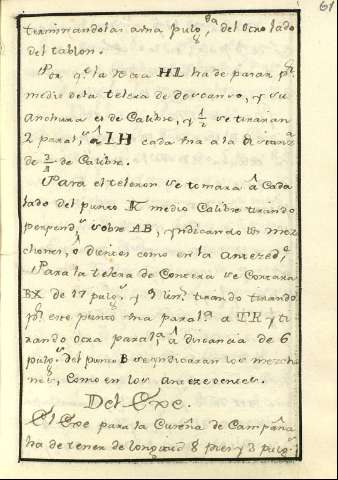 61
terminandolas a una pulg.da del otro lado
del tablon.
Por q.e la recta HI ha de pasar p.r
medio de la telera de descanso, y su
anchura es de Calibre, y 1/2 se tiraran
2 paral.s a IH cada una a la distancia
de 3/4 de Calibre.
Para el teleron se tomara a Cada
lado del punto K medio Calibre tirando
perpend.s sobre AB, y indicando los mez
chones, ó dientes como en la anteced.e
Para la telera de Contera se Contara
BX de 17 pulg.s y 9 lin.s tirando tirando
p.r este punto una paral.a a TR y ti
rando otra paral.a á distancia de 6
pulg.s del punto B se yndicaran los mezcho
nes, como en los antecedentes.
Del Exe.
El Exe para la Cureña de Campaña
ha de tener de longitud 8 pies y 3 pulg.s